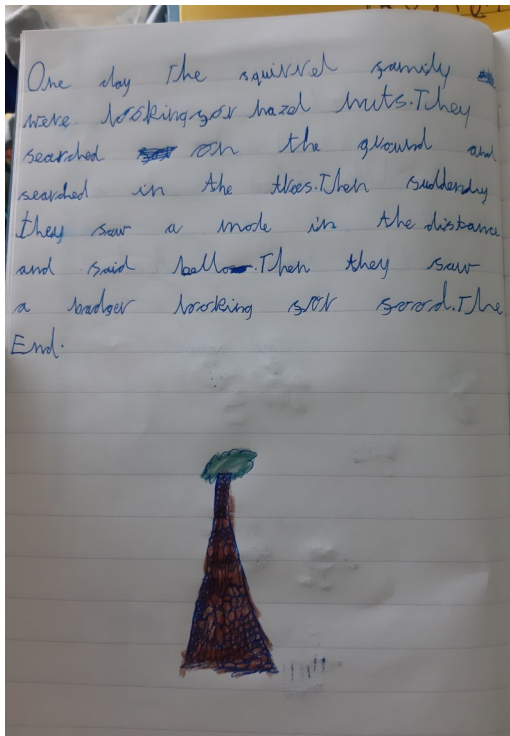 One day The squirrel family
were looking for hazel nuts. They
searched on the ground and
searched in the trees. Then suddenly
they saw a mole in the distance
and said hello. Then they saw
a badger looking for food. The
End.